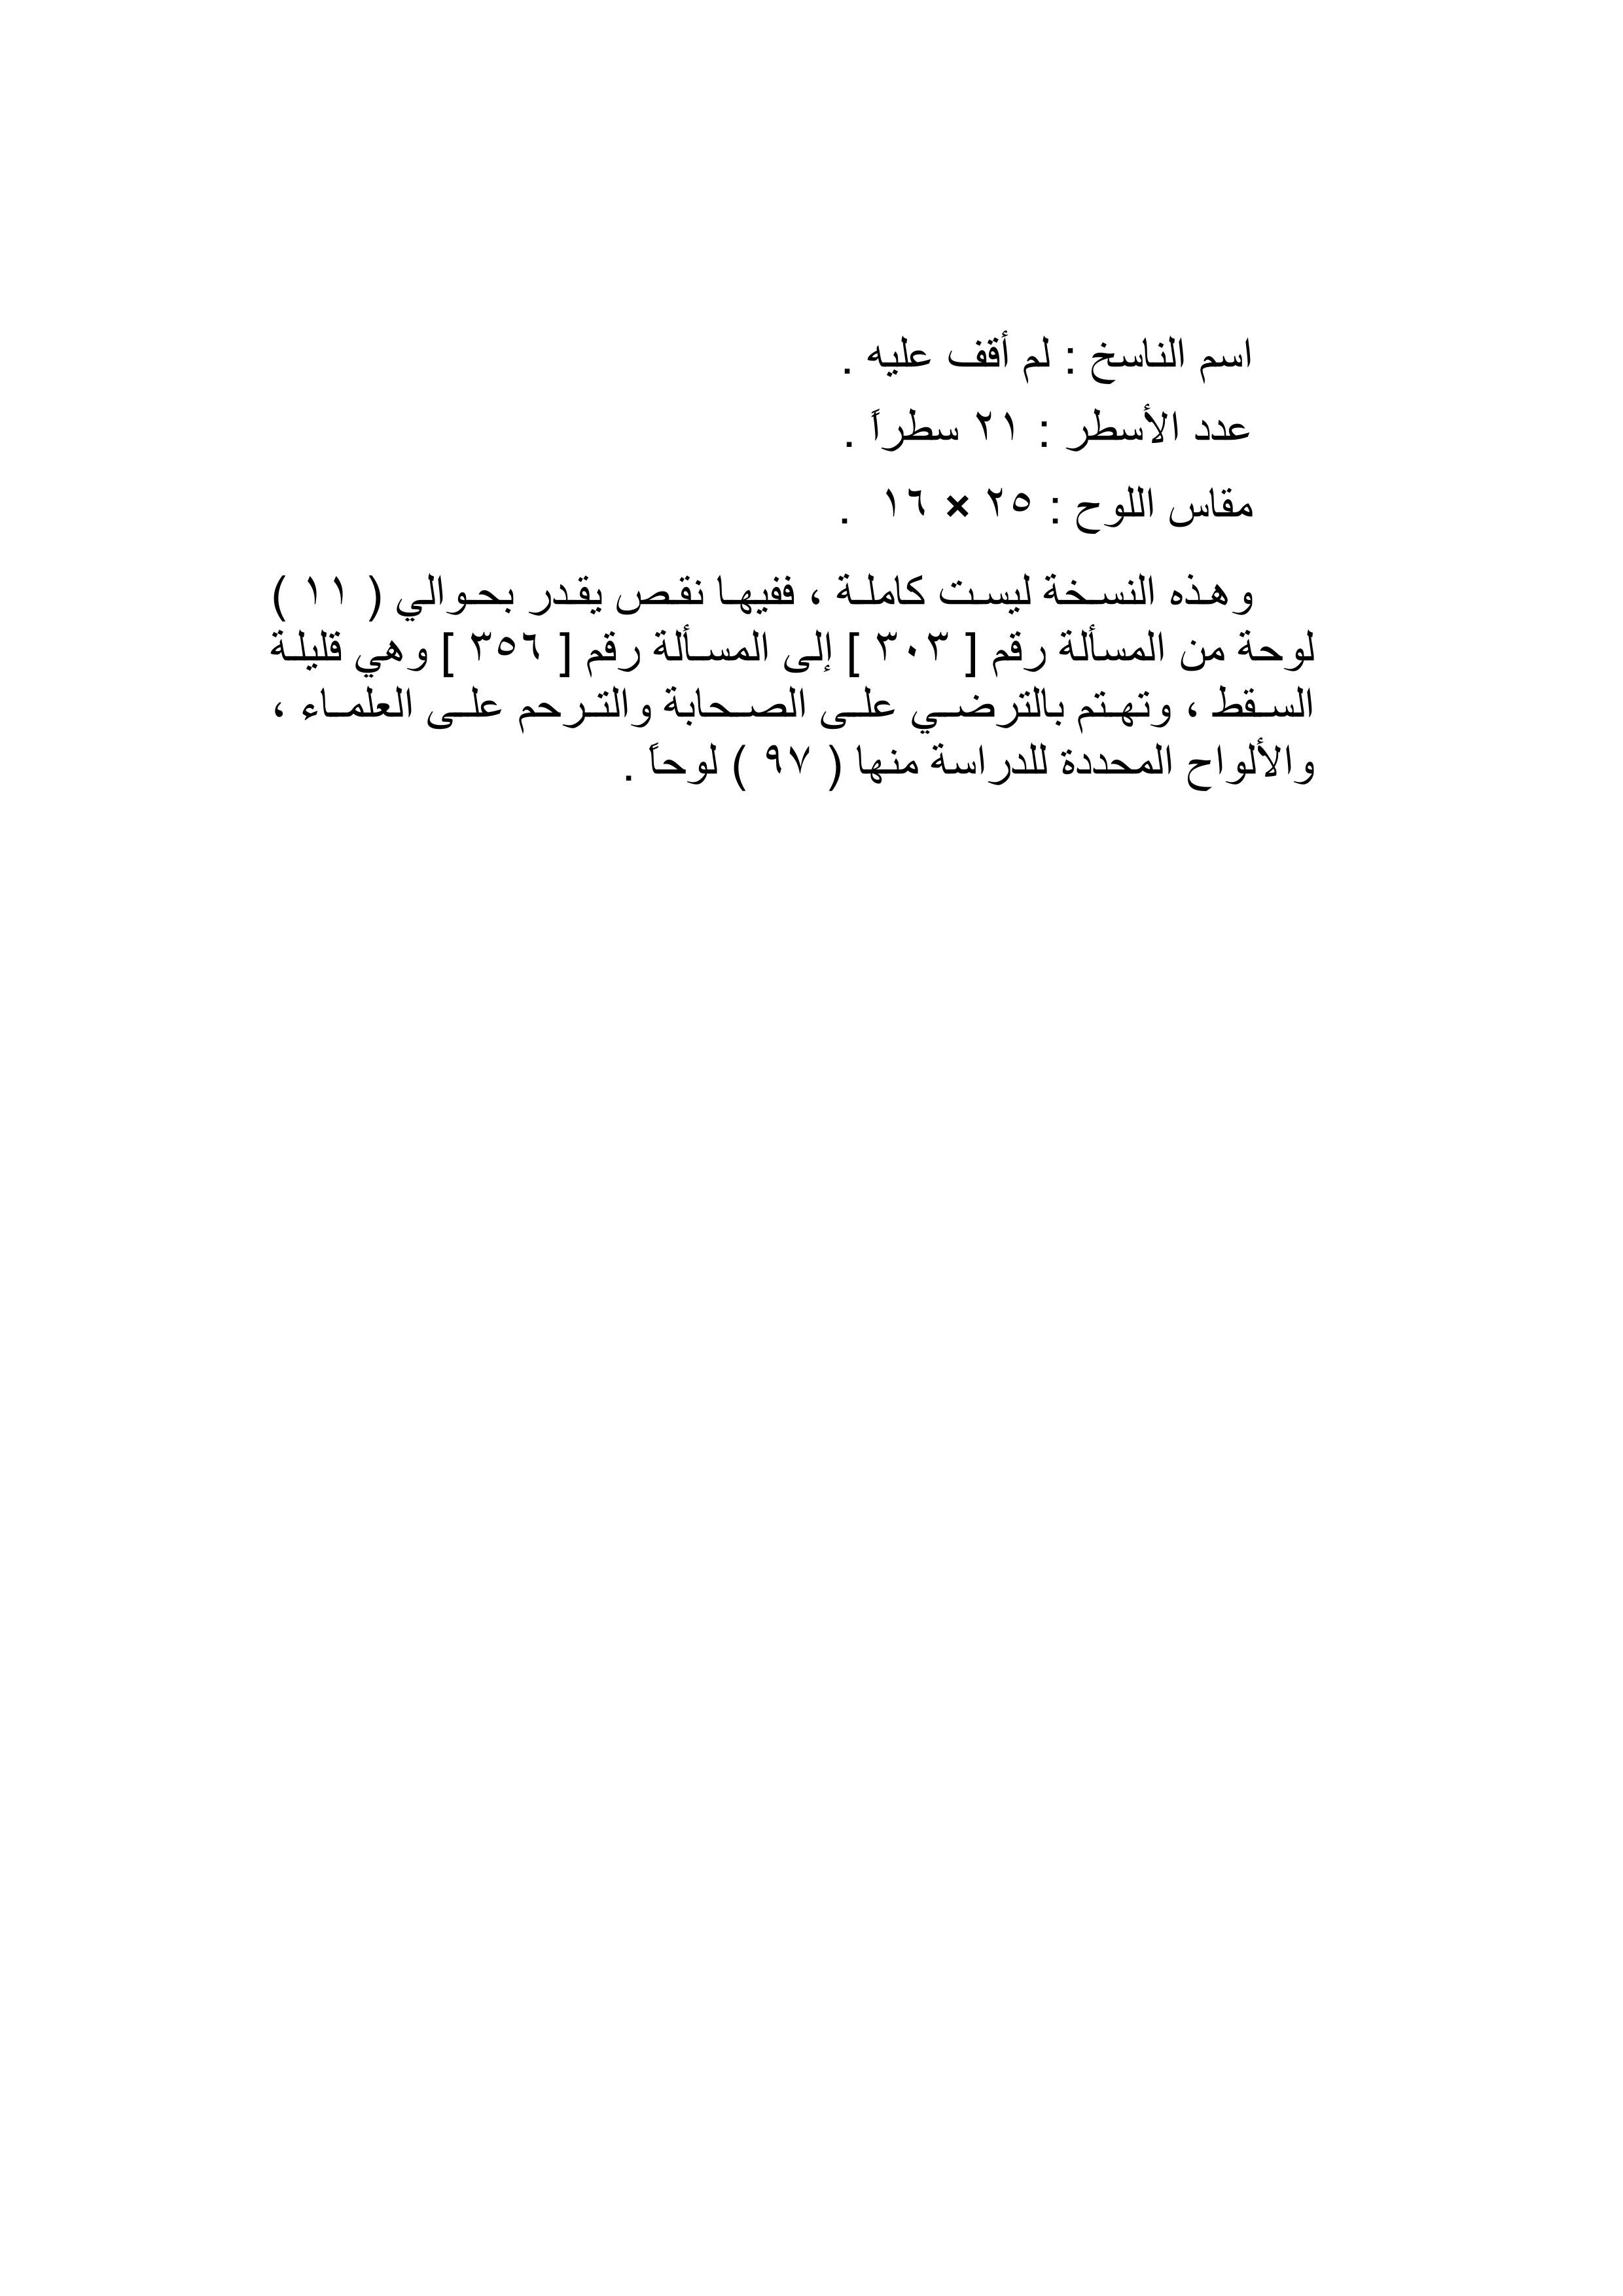 اسم الناسخ : لم أقف عليه .
عدد الأسطر : ٢١ سطراً .
مقاس اللوح : ٢٥ × ١٦ .
وهذه النسخة ليست كاملة ، ففيها نقص يقدر بحوالي ( ١١ )
لوحة من المسألة رقم [ ٣٠٣ ] إلى المسألة رقم [ ٣٥٦ ] وهي قليلة
السقط ، وتهتم بالترضي على الصحابة والترحم على العلماء ،
والألواح المحددة للدراسة منها ( ٩٧ ) لوحاً .